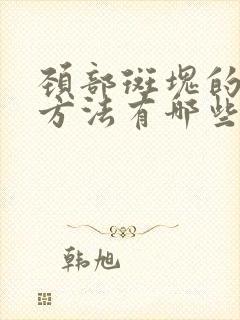 颈部斑块的
方法有哪些
韩旭